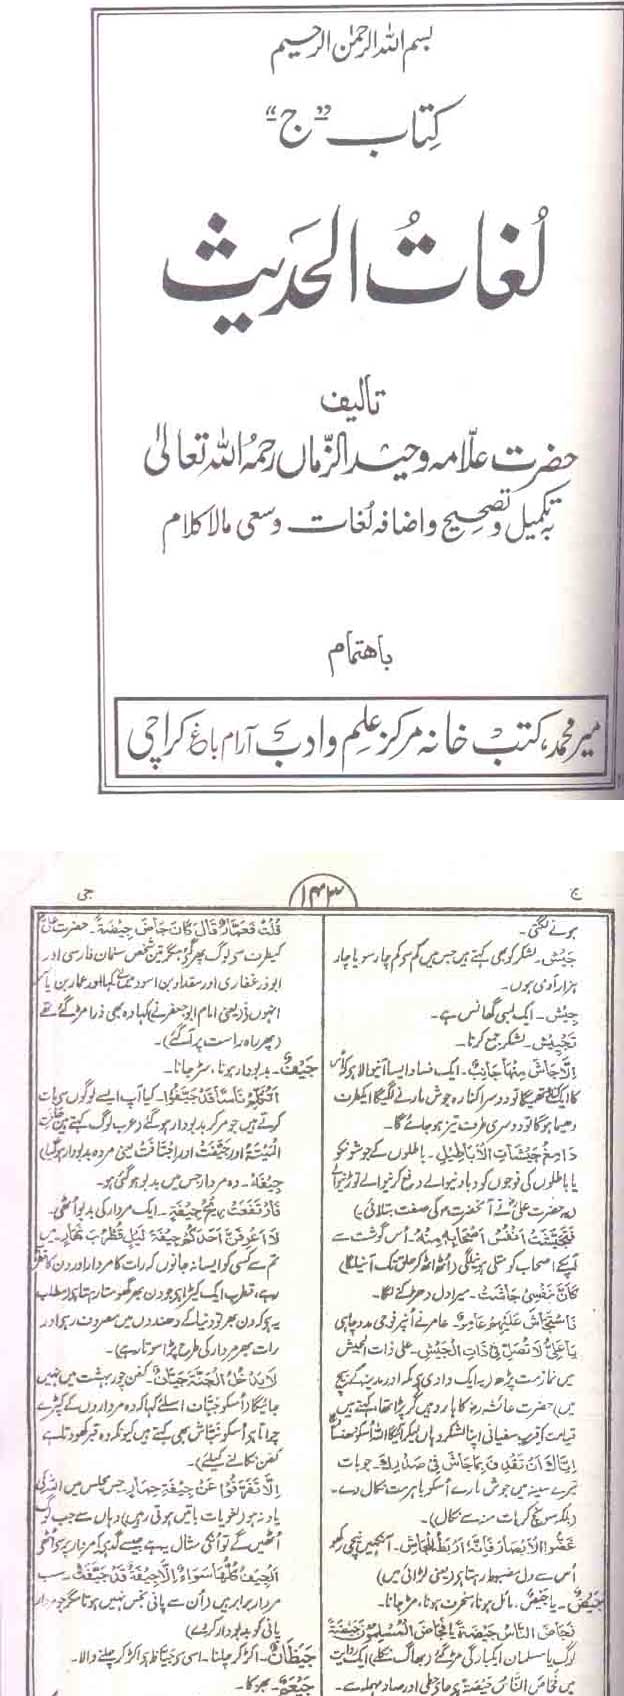 بسم اللہ الرحمٰن الرحیم
کتاب "ج"
لُغاتُ الحَدیث
تالیف
حضرت علّامہ وحید الزّماں رحمہُ اللہ تعالیٰ
بہ تکمیل و تصحیح و اضافہ لُغات وسعی مالا کلام
باھتمام
میر محمد، کتب خانہ مرکز علم و ادب آرام باغ کراچی
ج
۱۴۳
جی
ہونے لگتی۔
جَیْش۔ لشکر کو بھی کہتے ہیں جس میں کم سے کم چار سو یا چار
ہزار آدمی ہوں۔
جِیْش۔ ایک لمبی گھانس ہے۔
تَجْیِیْش۔ لشکر جمع کرنا۔
اِلَّا جَاشَ مِنْهَا جَانِبٌ۔ ایک فساد ایسا آنیوالا ہے کہ
دھیما ہوگا تو دوسری طرف تیز ہو جائے گا۔
دَامِغُ جَیْشَاتِ الْاَبَاطِیْلِ۔ باطلوں کے جوش کو
یا باطلوں کی فوجوں کو دبا دینے والے
فَجَیَّشَتْ اَنْفُسُ اَصْحَابِهٖ مِنْهُ۔ اُس گوشت سے
آپکے اصحاب کو متلی ہونے لگی
کَاَنَّ نَفْسِیْ جَاشَتْ۔ میرا دل دھڑکنے لگا۔
فَاسْتَجَاشَ عَلَیْهِمْ عَامِرٌ۔ عامر نے اُنپر فوجی مدد چاہی
یَا عَلِیُّ لَا تُصَلِّ فِیْ ذَاتِ الْجَیْشِ۔ علی ذات الجیش
میں نماز مت پڑھ (یہ ایک وادی ہے مکہ اور مدینہ کے بیچ
میں) حضرت عائشہ رض کا ہار وہیں گر پڑا تھا، کہتے ہیں
قیامت کے قریب سفیانی اپنا لشکر وہاں لیکر آئیگا
اِیَّاكَ اَنْ تَقْذِفَ بِمَا جَاشَ فِیْ صَدْرِكَ۔ جو بات
تیرے سینہ میں جوش مارے اُسکو باہر مت نکال دے۔
(بلکہ سوچ کر بات منہ سے نکال)۔
غَضُّوا الْاَبْصَارَ فَاِنَّهٗ اَرْبَطُ لِلْجَاشِ۔ آنکھیں نیچی رکھو
اُس سے دل مضبوط رہتا ہے (یعنی لڑائی میں)
جَیْضٌ۔ مائل ہونا، منحرف ہونا، مڑ جانا۔
فَجَاضَ النَّاسُ جَیْضَةً یا فَجَاضَ الْمُسْلِمُوْنَ جَیْضَةً
لوگ یا مسلمان ایکبارگی مڑ گئے (بھاگ نکلے) ایک روایت
میں فَحَاصَ النَّاسُ حَیْصَةً ہے حائے حطی اور صاد مہملہ سے۔
قُلْتُ فَعَمَّارٌ قَالَ كَانَ جَاضَ جَیْضَةً۔ حضرت علی
کیطرف سے لوگ پھر گئے مگر تین شخص سلمان فارسی اور
ابوذر غفاری اور مقداد بن اسود میں نے کہا اور عمار بن یاسر
انہوں نے (یعنی امام ابو جعفر نے) کہا وہ بھی ذرا مڑ گئے تھے
(پھر راہ راست پر آگئے)۔
جَیْفٌ۔ بدبودار ہونا، سڑ جانا۔
اَتُکَلِّمُ نَاسًا قَدْ جَیَّفُوْا۔ کیا آپ ایسے لوگوں سے بات
کرتے ہیں جو مر کر بدبودار ہوگئے (عرب لوگ کہتے ہیں
الْمَیْتَةُ اور جَیَّفَتْ اور اِجْتَافَتْ یعنی مردہ بدبودار ہوگیا)
جِیْفَةٌ۔ وہ مردار جس میں بدبو ہو گئی ہو۔
فَارْتَفَعَتْ رِیْحُ جِیْفَةٍ۔ ایک مردار کی بدبو اُٹھی۔
لَا اَعْرِفَنَّ اَحَدَكُمْ جِیْفَةَ لَیْلٍ قُطْرُبَ نَهَارٍ۔ میں
تم سے کسی کو ایسا نہ جانوں کہ رات کا مردار اور دن کا قطرب
رہے، قطرب ایک کیڑا ہے جو دن بھر گھومتا رہتا ہے مطلب
یہ ہے کہ دن بھر تو دنیا کے دھندوں میں مصروف رہے اور
رات بھر مردار کی طرح پڑا سوتا رہے)۔
لَا یَدْخُلُ الْجَنَّةَ جَیَّافٌ۔ کفن چور بہشت میں نہیں
جائیگا (اُسکو جیّاف اسلئے کہا کہ وہ مرداروں کے کپڑے
چراتا ہے اُسکو نبّاش بھی کہتے ہیں کیونکہ وہ قبر کھودتا ہے
کفن نکالنے کیلئے)۔
اِلَّا تَفَرَّقُوْا عَنْ جِیْفَةِ حِمَارٍ۔ جس مجلس میں اللہ کی
یاد نہ ہو (لغویات باتیں ہوتی رہیں) وہاں سے جب لوگ
اُٹھیں گے تو اُنکی مثال یہ ہے جیسے گدھے کے مردار پر سے اُٹھے
اَلْجِیَفُ کُلُّهَا سَوَاءٌ اِلَّا جِیْفَةٌ قَدْ جَیَّفَتْ۔ سب
مردار برابر ہیں (اُن سے پانی نجس نہیں ہوتا مگر جو مردار
پانی کو بدبودار کر دے)
جَیَظَانٌ۔ اکڑ کر چلنا۔ اسی سے جَیَّاظٌ ہے اکڑ کر چلنے والا۔